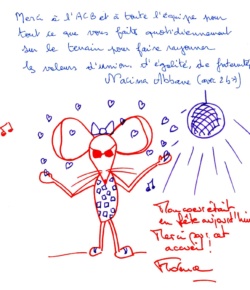 Merci à l'ACB et à toute l'équipe pour
tout ce que vous faites quotidiennement
sur le terrain pour faire rayonner
les valeurs d'union, d'égalité, de fraternité
Mon coeur était
en fête aujourd'hui
Merci pour cet
accueil !